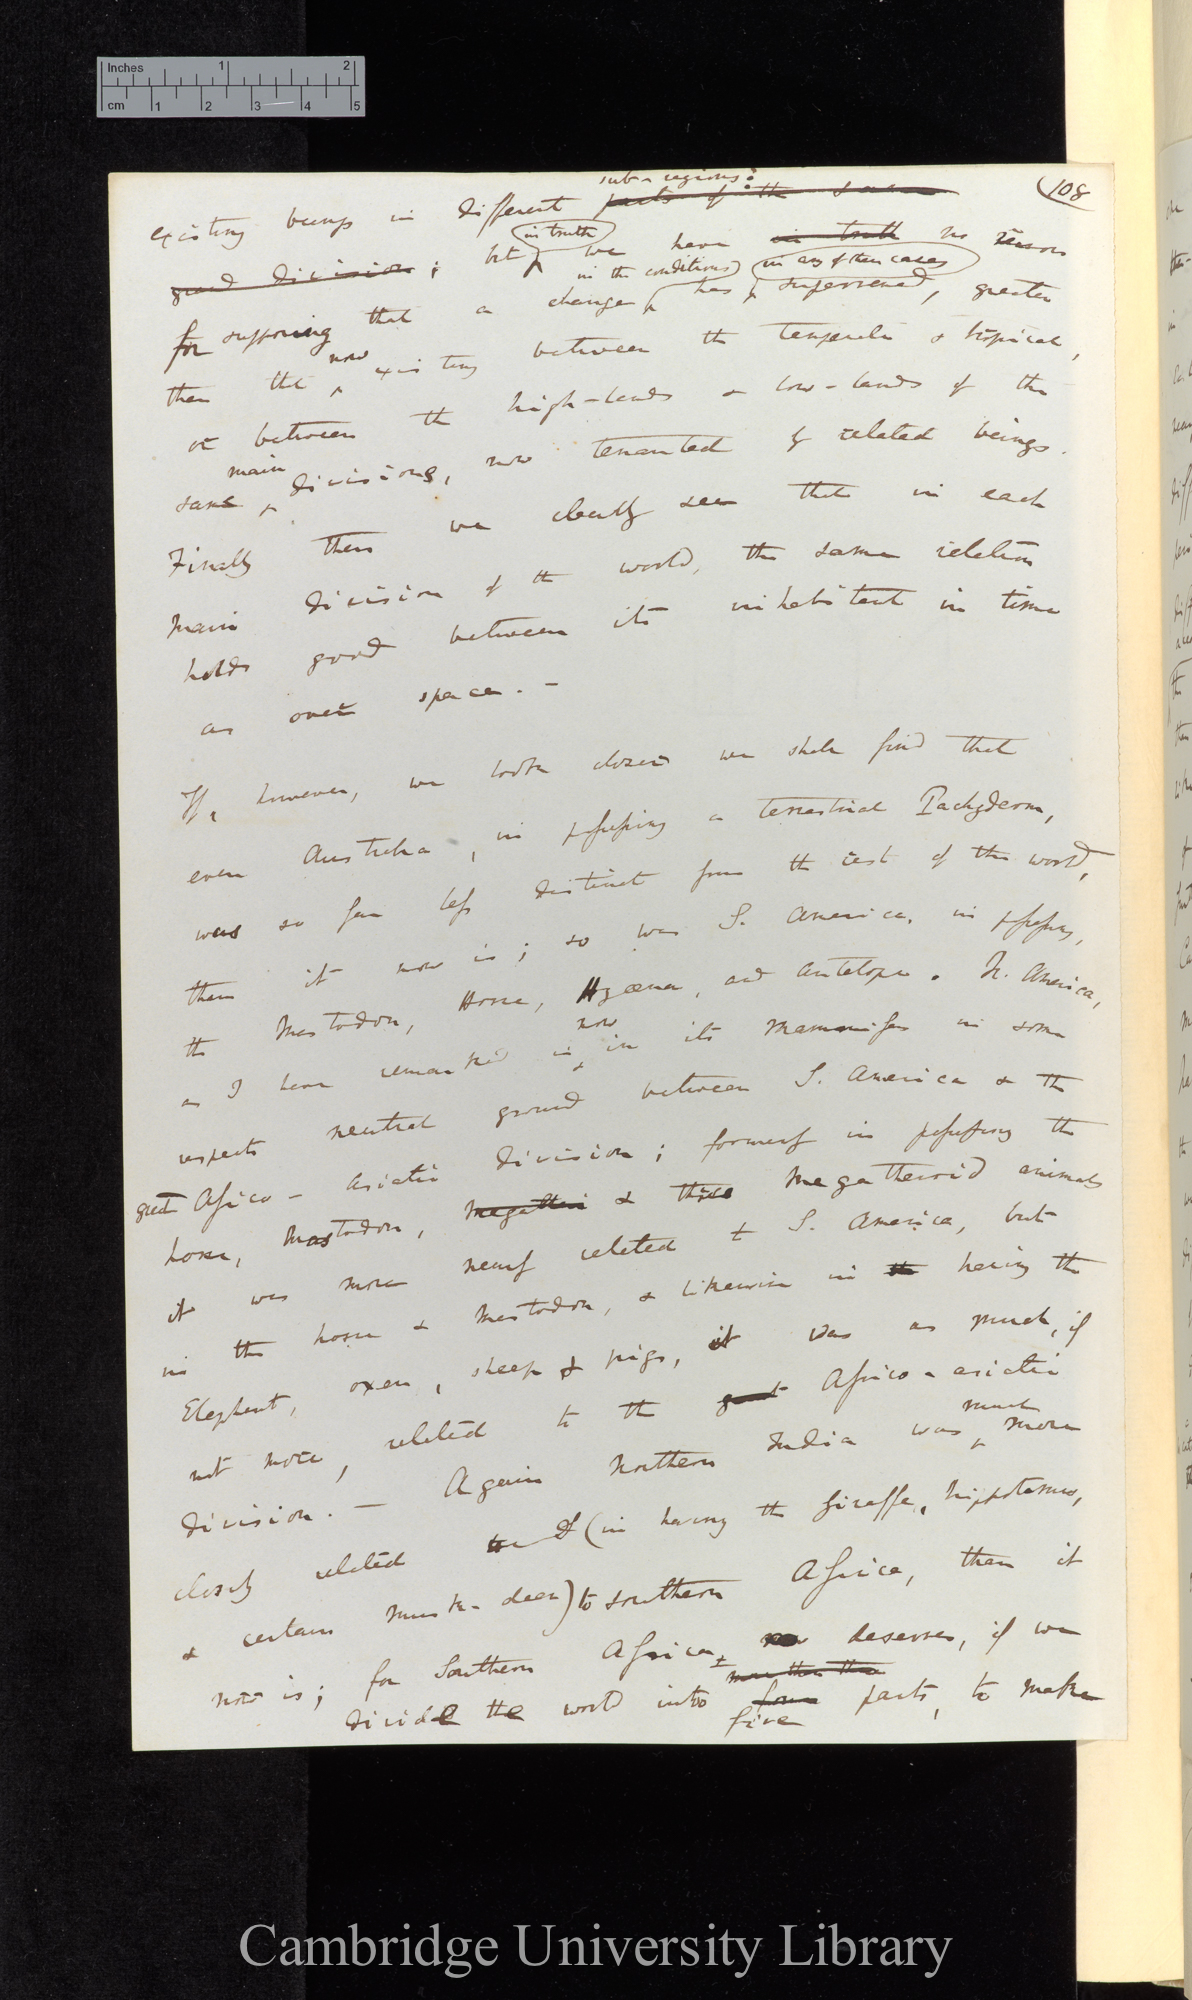 Inches 1 2
cm 1 2 3 4 5
108
sub-regions:
existing beings in different parts of the same
in truth
grand division; but we have in truth no reason
in the conditions in any of these cases
for supposing that a change has supervened, greater
now
than that existing between the temperate & tropical,
or between the high-lands & low-lands of the
main
same divisions, now tenanted by related beings.
Finally then we clearly see that in each
main division of the world, the same relation
holds good between its inhabitant in time
as over space. —
If, however, we look closer we shall find that
even Australia, in possessing a terrestrial Pachyderm,
was so far less distinct from the rest of the world,
than it now is; so was S. America, in possessing,
the Mastodon, Horse, Hyæna, and antelope. N. America,
now
as I have remarked is in its mammifers in some
respects neutral ground between S. America & the
great Africo-asiatic division; formerly in possessing the
horse, Mastodon, & three Megatheroid animals
it was more nearly related to S. America, but
in the horse & Mastodon, & likewise in the having the
Elephant, oxen, sheep & pigs, it was as much, if
not more, related to the great Africo-asiatic
much
division. — Again Northern India was more
closely related (in having the Giraffe, hippotamus,
& certain musk-deer) to southern Africa, than it
now is; for Southern Africa deserves, if we
more than this
divide the world into four parts, to make
five
Cambridge University Library